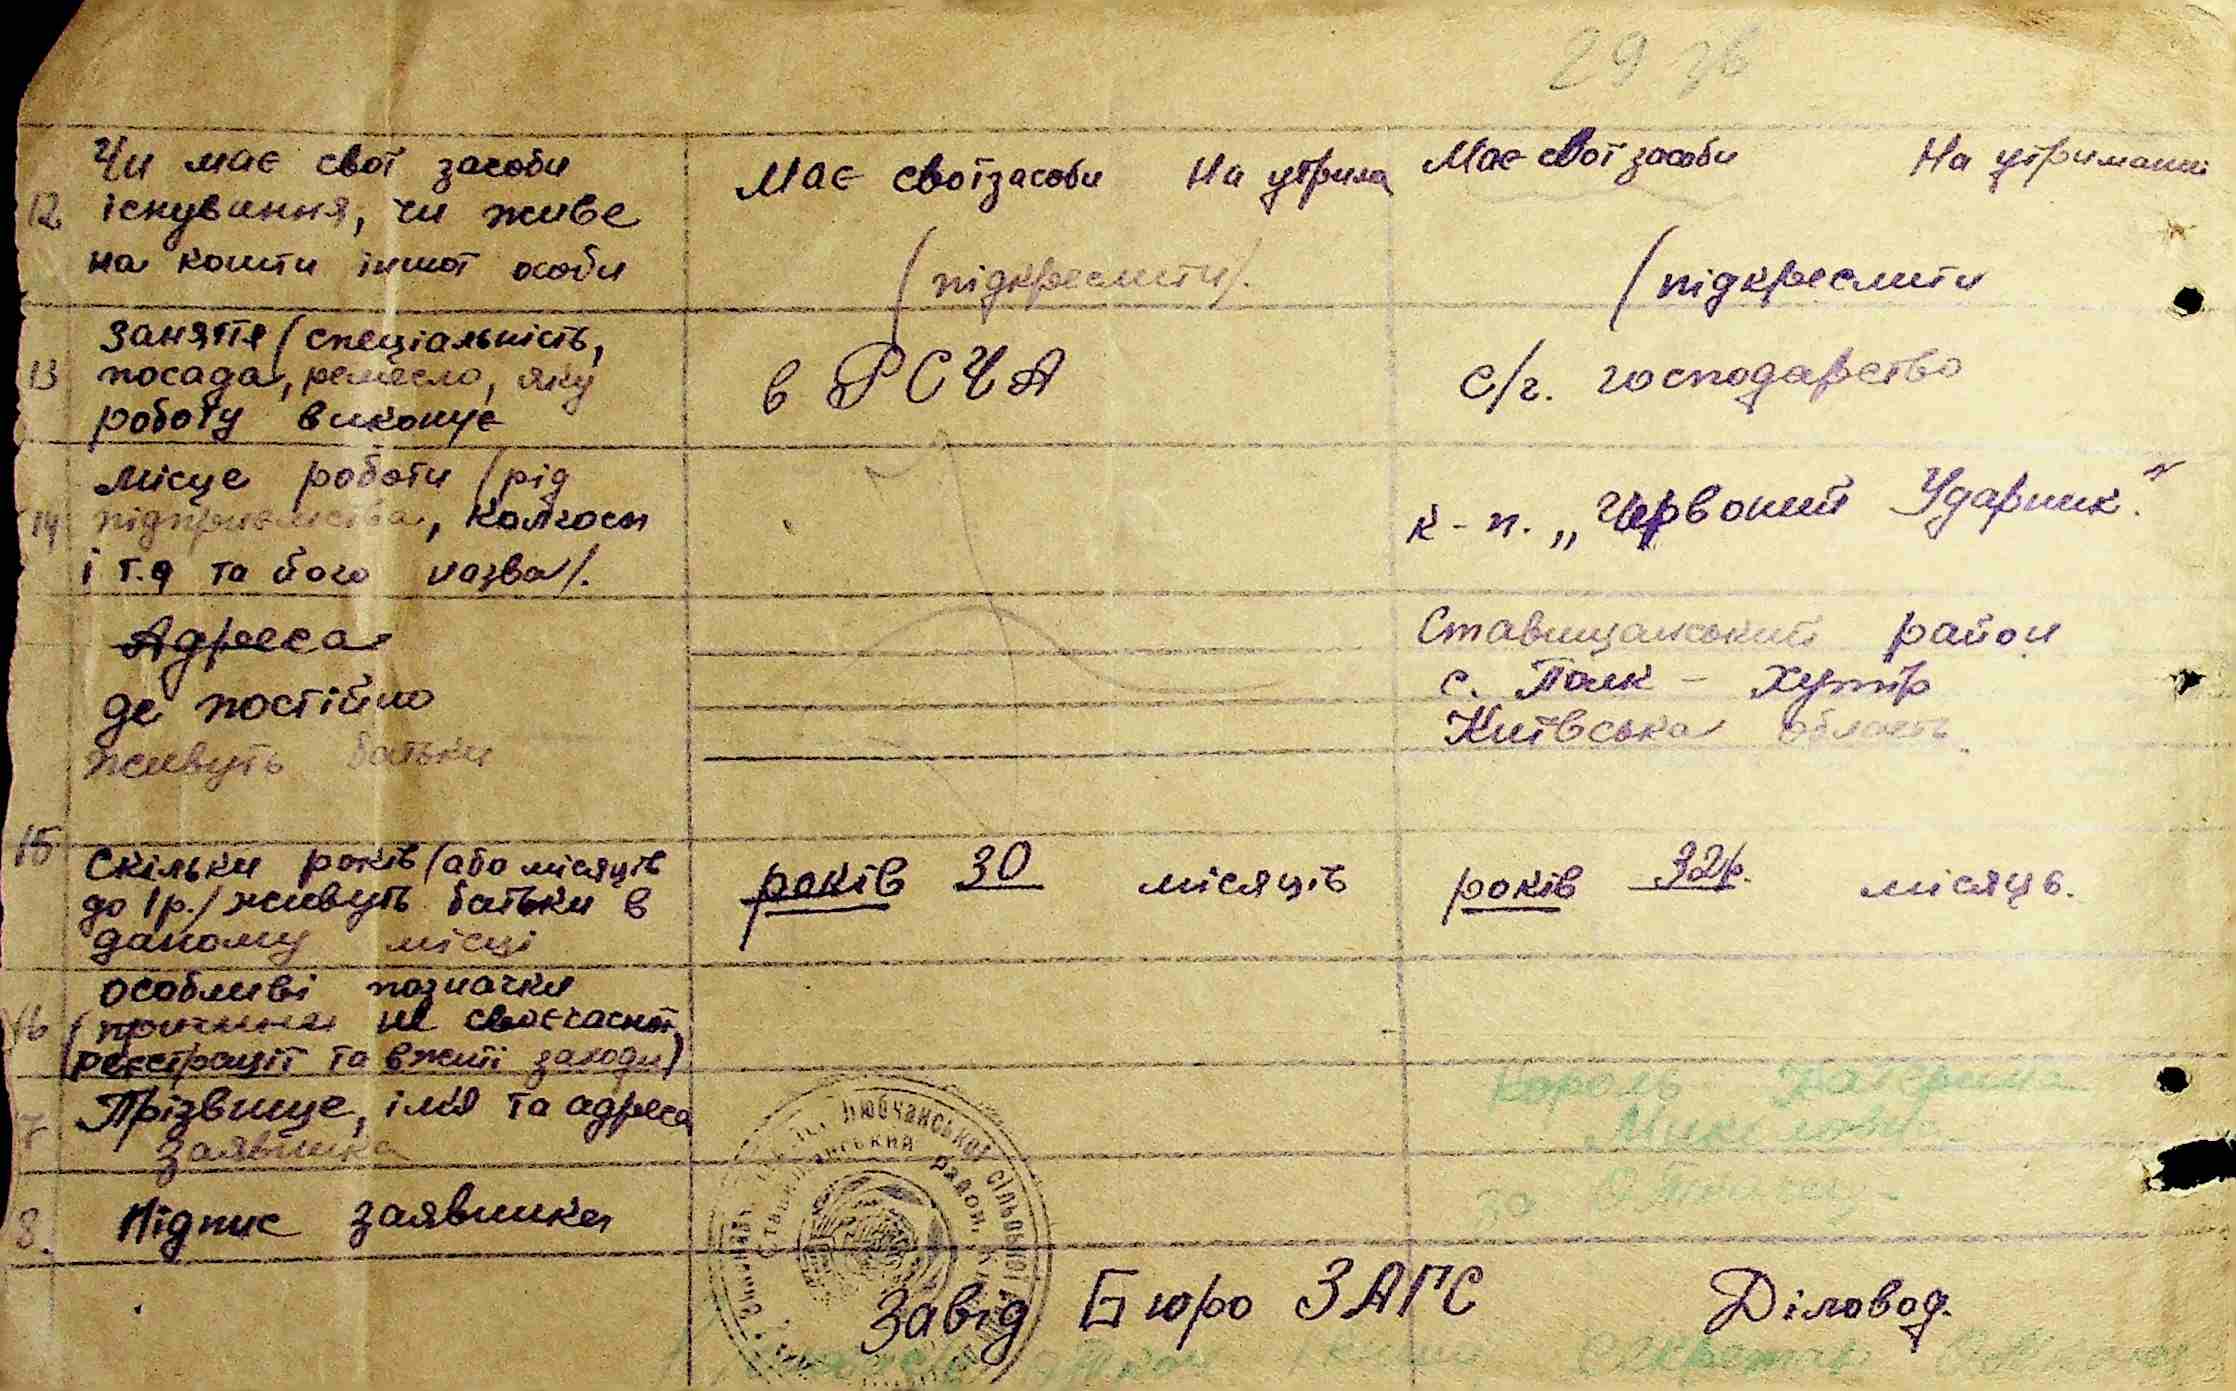 29 зв
12 Чи має свої засоби існування, чи живе на кошти іншої особи
Має свої засоби На утрима
(підкреслити).
Має свої засоби На утриманні
(підкреслити
13 Заняття (спеціальність, посада, ремесло, яку роботу виконує
в РСЧА
с/г. господарство
14 Місце роботи (рід підприємства, колгосп і т.д та його назва).
к-п. „Червоний Ударник."
Адреса
де постійно
живуть батьки
Ставищанський район
с. Полк - Хутір
Київська область.
15 Скільки років (або місяців до 1 р.) живуть батьки в даному місці
років 30 місяців
років 32р. місяць.
16 Особливі позначки (причини не своєчасної реєстрації та вжиті заходи)
7 Прізвище, імя та адреса заявника
Король Катерина
8. Підпис заявника
за
Любчанської сільської
район,
Завід Бюро ЗАГС Діловод.
Секретар